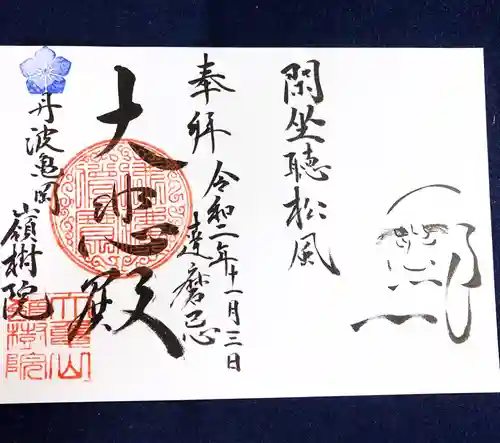 閑坐聴松風
奉拝
令和二年十一月三日
達磨忌
大悲殿
丹波亀岡
嶺樹院